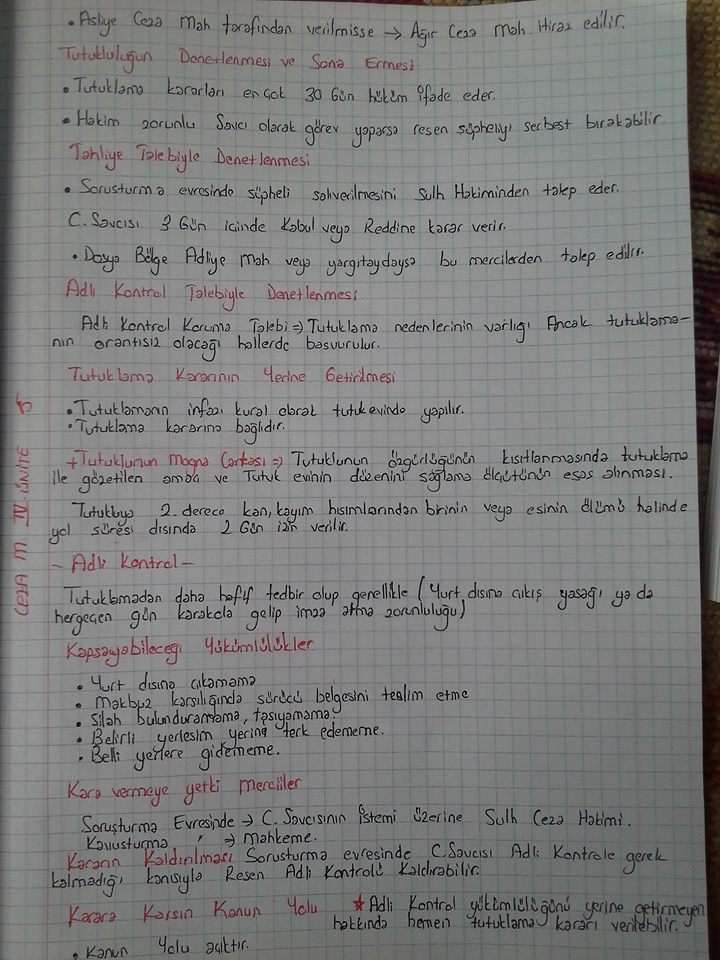 • Asliye Ceza Mah tarafından verilmisse → Ağır Ceza Mah. İtiraz edilir.
Tutukluluğun Denetlenmesi ve Sona Ermesi
• Tutuklama kararları en çok 30 Gün hüküm ifade eder.
• Hakim zorunlu Savcı olarak görev yaparsa resen şüpheliyi serbest bırakabilir
Tahliye Talebiyle Denetlenmesi
• Sorusturma evresinde süpheli salıverilmesini Sulh Hakiminden talep eder.
C. Savcısı 3 Gün icinde Kabul veya Reddine karar verir.
• Dosya Bölge Adliye Mah veya yargıtaydaysa bu mercilerden talep edilir.
Adli Kontrol Talebiyle Denetlenmesi
Adli Kontrol Koruma Talebi => Tutuklama nedenlerinin varlığı Ancak tutuklama-
nın orantısız olacağı hallerde basvurulur.
Tutuklama Kararının Yerine Getirilmesi
• Tutuklamanın infazı kural olarak tutukevinde yapılır.
• Tutuklama kararına bağlıdır.
+ Tutuklunun Magna Cartası => Tutuklunun özgürlüğünün kısıtlanmasında tutuklama
ile gözetilen amaç ve Tutuk evinin düzenini sağlama ölçütünün esas alınması.
Tutukluya 2. derece kan, kayım hısımlarından birinin veya esinin ölümü halinde
yol süresi dısında 2 Gün izin verilir.
- Adli Kontrol -
Tutuklamadan daha hafif tedbir olup genellikle (Yurt dısına çıkış yasağı ya da
hergeçen gün karakola gelip imza atma zorunluluğu)
Kapsayabileceği Yükümlülükler
• Yurt dısına çıkamama
• Makbuz karsılığında sürücü belgesini teslim etme
• Silah bulunduramama, taşıyamama.
• Belirli yerlesim yerini terk edememe.
• Belli yerlere gidememe.
Kara vermeye yetki merciiler
Soruşturma Evresinde → C. Savcısının İstemi üzerine Sulh Ceza Hakimi.
Kovusturma " => Mahkeme.
Kararın Kaldırılması Sorusturma evresinde C.Savcısı Adli Kontrole gerek
kalmadığı kanısıyla Resen Adli Kontrolü kaldırabilir.
Karara Karsın Kanun Yolu ★ Adli Kontrol yükümlülüğünü yerine getirmeyen
hakkında hemen tutuklama kararı verilebilir.
• Kanun Yolu açıktır.
CEZA M IV. ÜNİTE 5